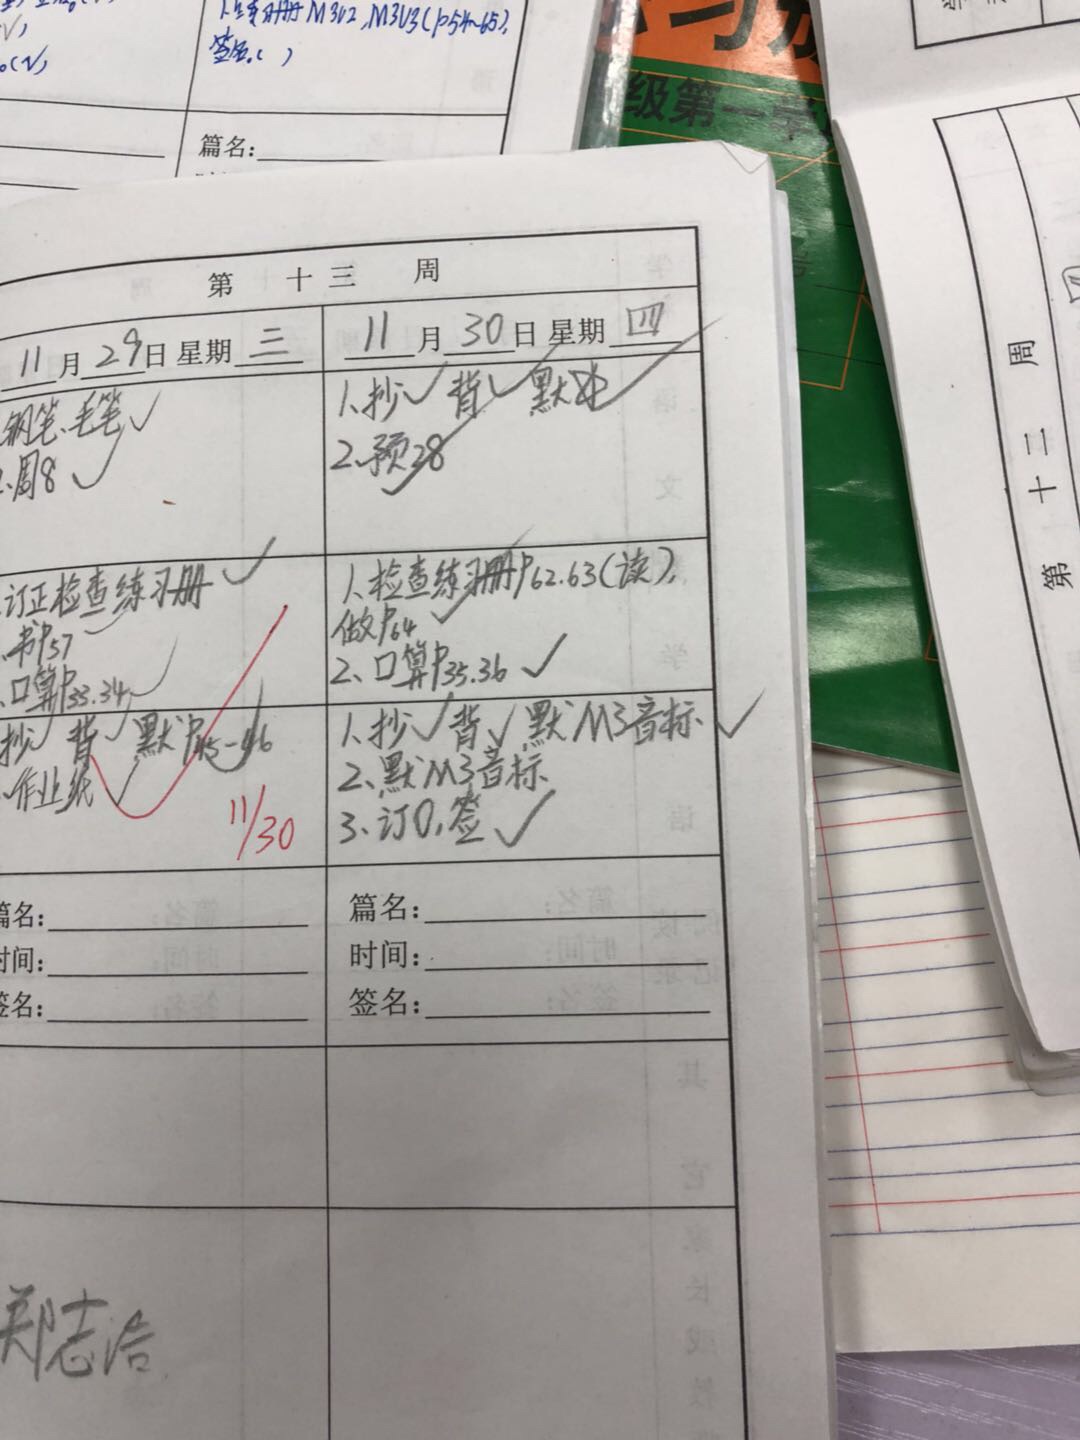 M3U2,M3U3(P54~65),
签名。( )
篇名:
级第一学
第 十 三 周
11月29日 星期三
钢笔、毛笔
2、周8
订正检查练习册
书P57
口算P33.34
抄 背 默P45-46
作业纸
11/30
篇名:
时间:
签名:
郑志浩
11月30日 星期四
1、抄 背 默
2、预28
1、检查练习册P62.63(读),
做P64
2、口算P35.36
1、抄 背 默M3音标
2、默M3音标
3、订0,签
篇名:
时间:
签名:
第 十 三 周
四